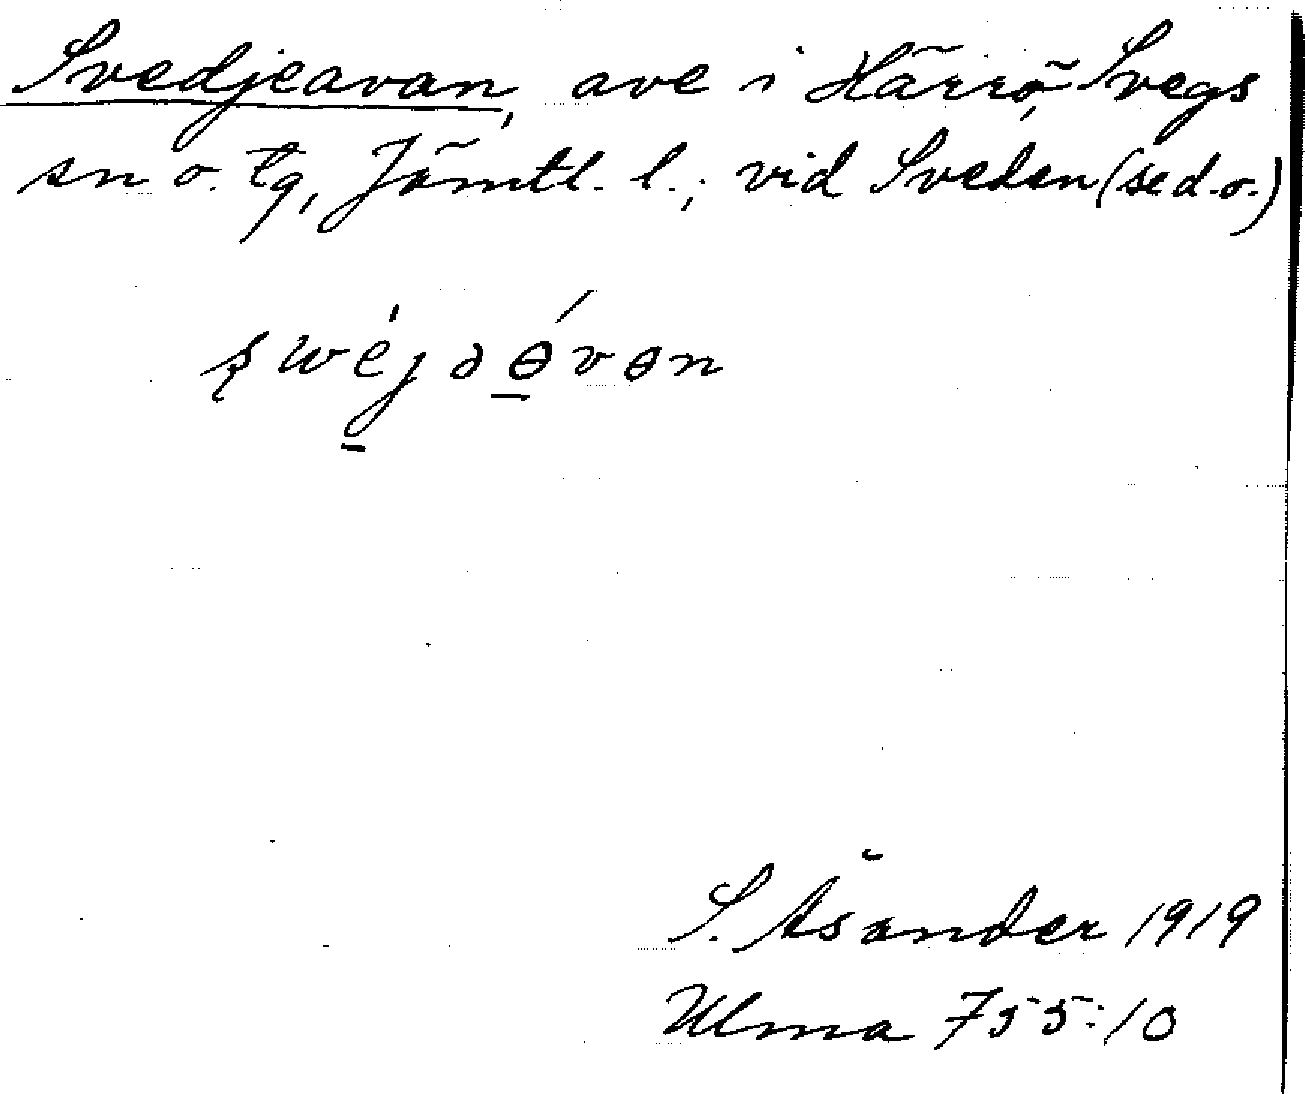 Svedjeavan, ave i Härrö, Svegs
sn o. tg, Jämtl. l.; vid Sveden (se d.o.)
S. Åsander 1919
Ulma 755:10